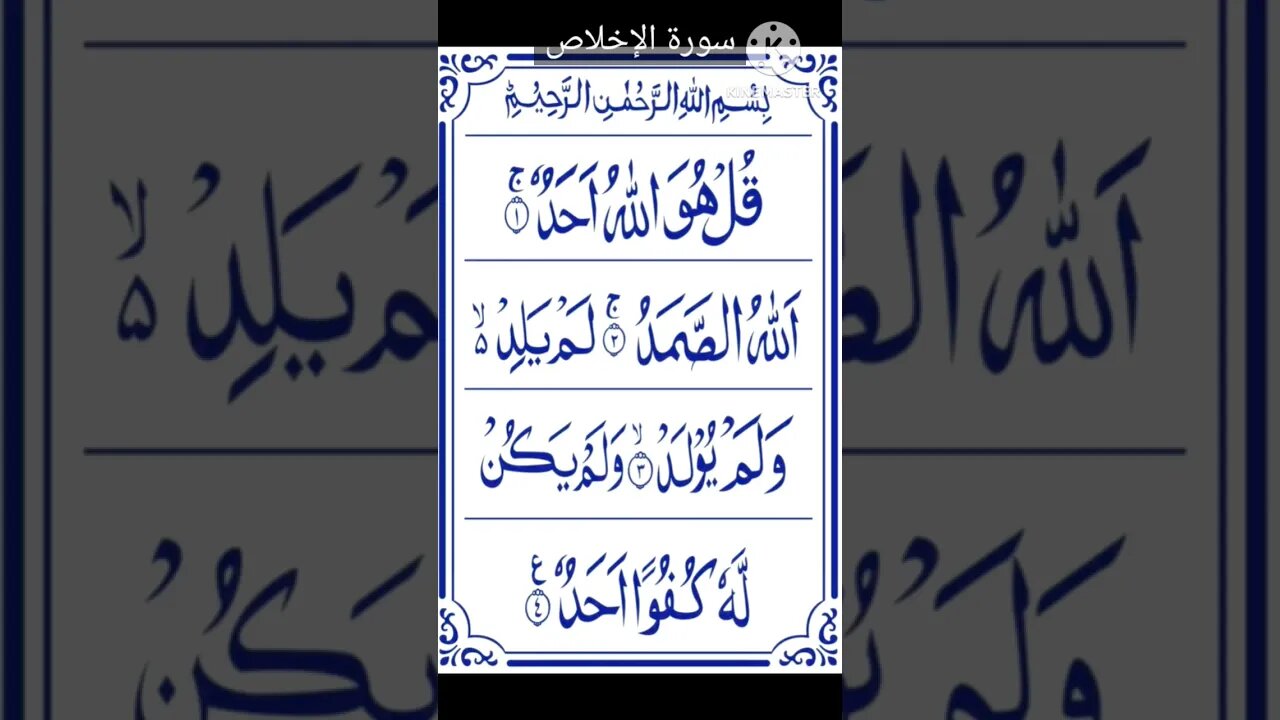 سورة الإخلاص
KINEMASTER
بِسْمِ اللهِ الرَّحْمٰنِ الرَّحِيْمِ
قُلْ هُوَ اللهُ اَحَدٌ ۚ ﴿١﴾
اَللهُ الصَّمَدُ ۚ ﴿٢﴾ لَمْ يَلِدْ ۙ۵
وَلَمْ يُوْلَدْ ۙ ﴿٣﴾ وَلَمْ يَكُنْ
لَّهٗ كُفُوًا اَحَدٌ ع ﴿٤﴾